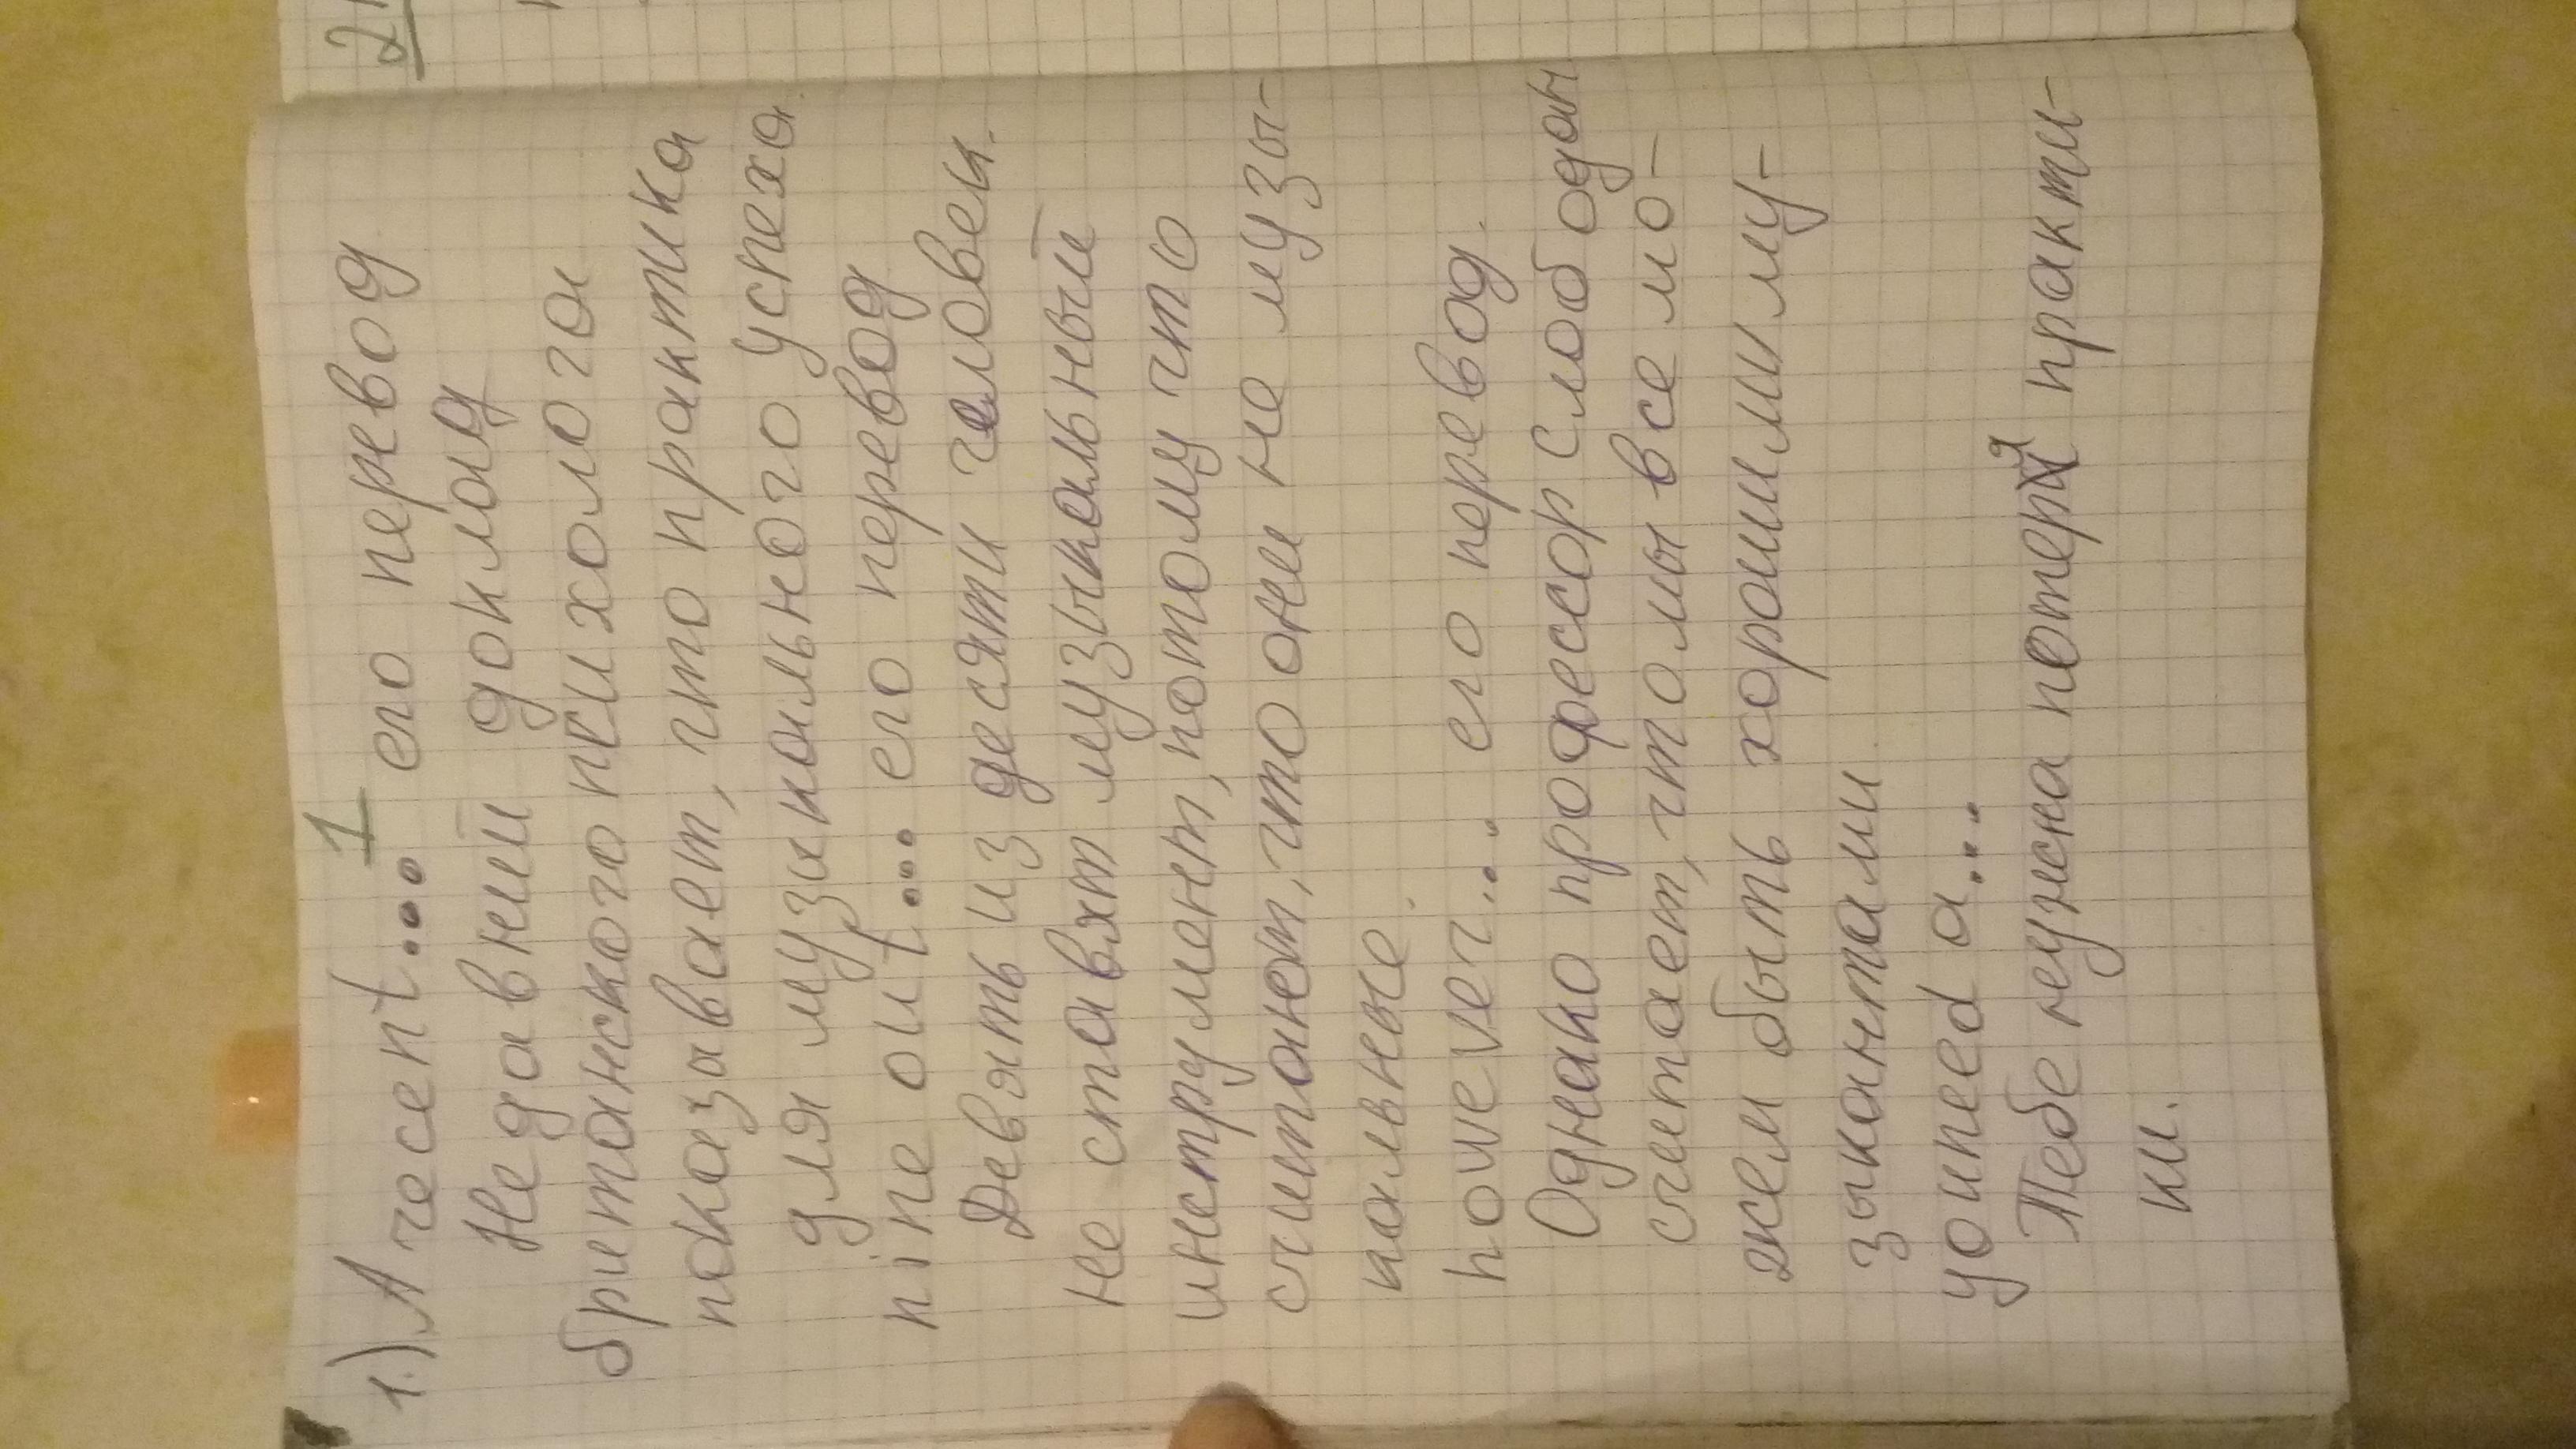 1
1.) A чecent... его перевод
Недавний доклад
британского психолога
показывает, что практика
для музыкального успеха.
nine out... его перевод
Девять из десяти человек.
не ставят музыкальный
инструмент, потому что
считают, что они не музы-
кальные.
however... его перевод.
Однако профессор Слободан
считает, что мы все мо-
жем быть хорошими му-
зыкантами
youneed a...
Тебе нужна потеря практи-
ки.
21